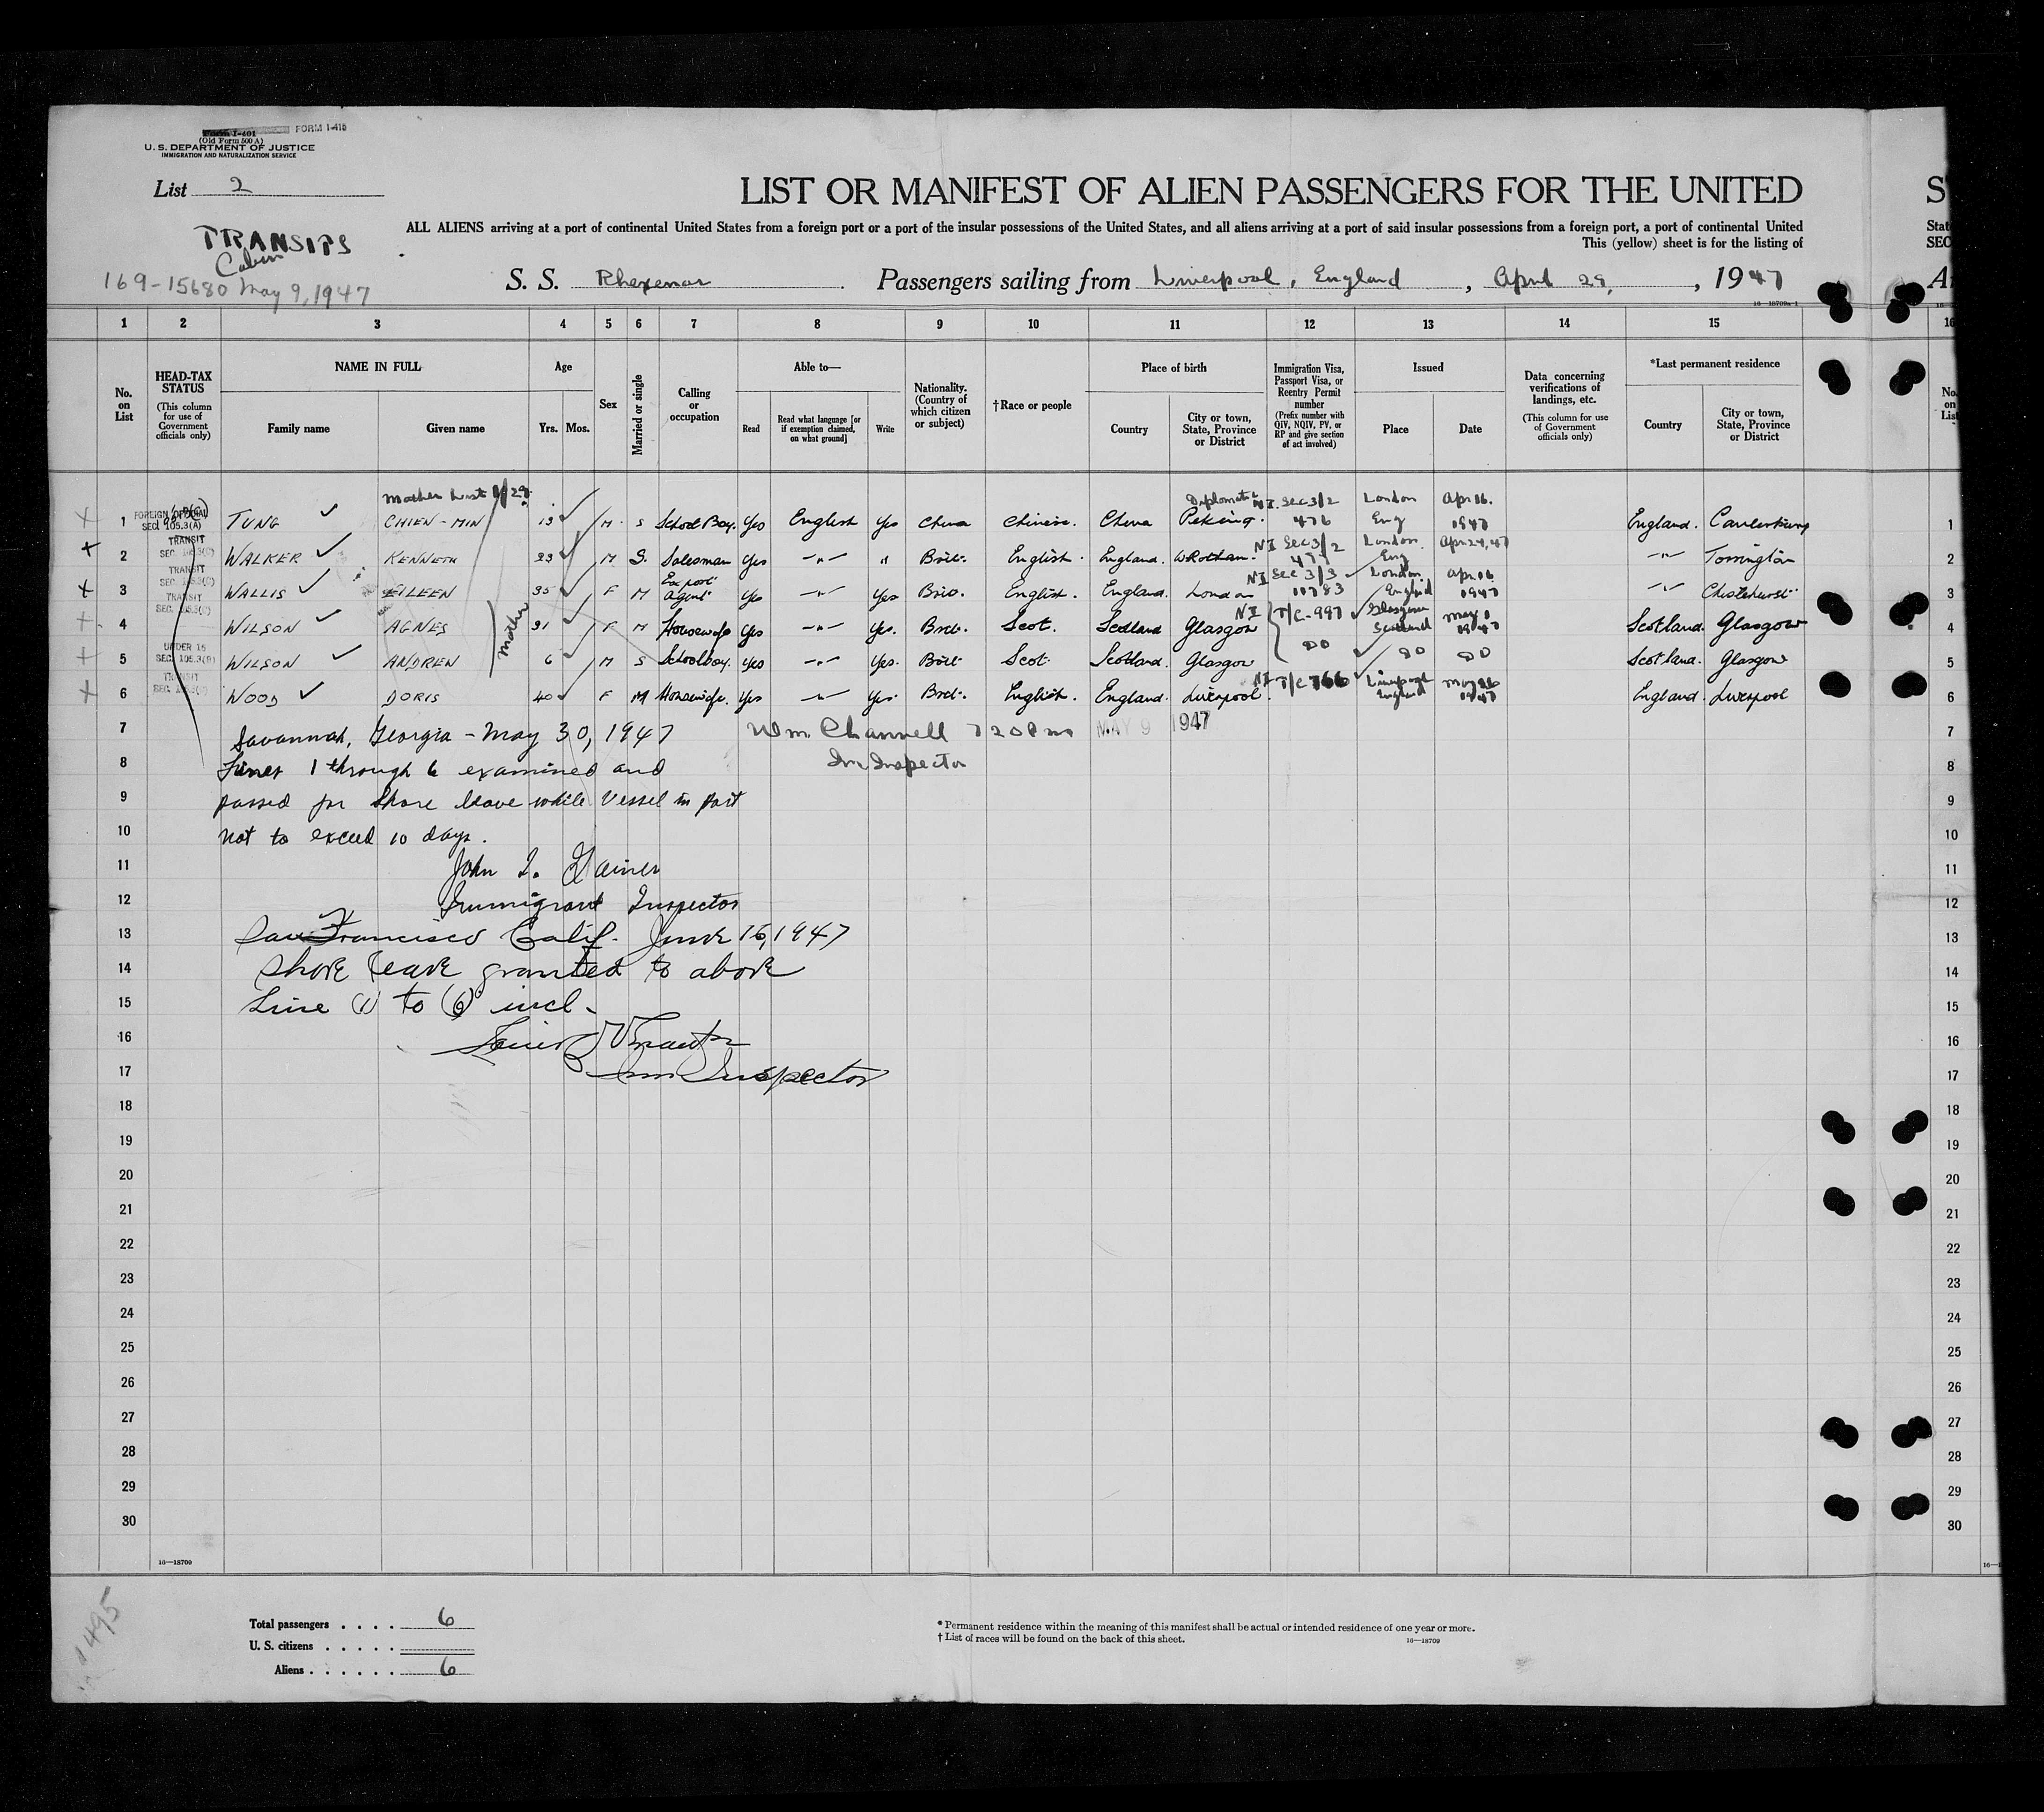 Form I-401 FORM I-415
(Old Form 500 A)
U. S. DEPARTMENT OF JUSTICE
IMMIGRATION AND NATURALIZATION SERVICE
List 2
LIST OR MANIFEST OF ALIEN PASSENGERS FOR THE UNITED
ALL ALIENS arriving at a port of continental United States from a foreign port or a port of the insular possessions of the United States, and all aliens arriving at a port of said insular possessions from a foreign port, a port of continental United
This (yellow) sheet is for the listing of
TRANSITS
Cabin
169-15680 May 9, 1947
S. S. Rhexenor Passengers sailing from Liverpool, England, April 29, 1947
16—18709a-1
1 2 3 4 5 6 7 8 9 10 11 12 13 14 15 16
No. on List
HEAD-TAX STATUS
(This column for use of Government officials only)
NAME IN FULL
Family name Given name
Age
Yrs. Mos.
Sex
Married or single
Calling or occupation
Able to—
Read Read what language [or if exemption claimed, on what ground] Write
Nationality. (Country of which citizen or subject)
†Race or people
Place of birth
Country City or town, State, Province or District
Immigration Visa, Passport Visa, or Reentry Permit number
(Prefix number with QIV, NQIV, PV, or RP and give section of act involved)
Issued
Place Date
Data concerning verifications of landings, etc.
(This column for use of Government officials only)
*Last permanent residence
Country City or town, State, Province or District
Mother List 1/29 Diplomatic NI Sec 3/2 London Apr 16.
1 FOREIGN OFFICIAL SEC. 105.3(A) TUNG CHIEN-MIN 13 M S School Boy. Yes English Yes China Chinese. China Peking. 476 Eng 1947 England. Canterbury 1
2 TRANSIT WALKER KENNETH M S. Salesman Yes -"- " Brit. English. England. NI Sec 3/2 London Eng Apr 24, 47 -"- Torrington 2
3 TRANSIT WALLIS EILEEN 35 F M Export agent Yes -"- Yes Brit. English. England. London NI Sec 3/3 10783 London England Apr 16 1947 -"- Chislehurst 3
4 TRANSIT WILSON AGNES 31 F M Housewife Yes -"- Yes. Brit. Scot. Scotland Glasgow NI T/C-997 Glasgow Scotland May 1 1947 Scotland. Glasgow 4
mother
5 UNDER 16 SEC. 105.3(B) WILSON ANDREW 6 M S Schoolboy. Yes -"- Yes. Brit. Scot. Scotland. Glasgow DO DO DO Scotland. Glasgow 5
6 TRANSIT WOOD DORIS 40 F M Housewife. Yes -"- Yes. Brit. English. England. Liverpool. NI T/C 766 Liverpool England 1947 England. Liverpool 6
7 Savannah, Georgia - May 30, 1947 Wm Channell 720 Pm MAY 9 1947 7
8 Lines 1 through 6 examined and Im Inspector 8
9 passed for shore leave while vessel in port 9
10 not to exceed 10 days. 10
11 John 11
12 Immigrant Inspector 12
13 San Francisco Calif. June 16, 1947 13
14 Shore leave granted to above 14
15 Line (1) to (6) incl. 15
16 16
17 Imm Inspector 17
18 18
19 19
20 20
21 21
22 22
23 23
24 24
25 25
26 26
27 27
28 28
29 29
30 30
16—18709
1495
Total passengers . . . . 6
U. S. citizens . . . . .
Aliens . . . . . . 6
* Permanent residence within the meaning of this manifest shall be actual or intended residence of one year or more.
† List of races will be found on the back of this sheet. 16—18709